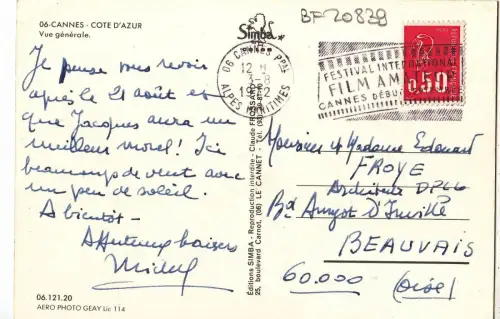 06-CANNES - COTE D'AZUR
Vue générale.
Je pense vous revoir
après le 21 août et
que Jacques aura un
meilleur moral! Ici
beaucoup de vent avec
un peu de soleil.
A bientôt -
Affectueux baisers
Michel
06.121.20
AERO PHOTO GEAY Lic 114
Simba
Editions SIMBA - Reproduction interdite - Claude FROSSARD
25, boulevard Carnot, (06) LE CANNET - Tél.
BF20839
06 CANNES PPAL
12 H
ALPES MARITIMES
FESTIVAL INTERNATIONAL
FILM AMATEUR
CANNES DÉBUT
0,50
Monsieur et Madame Edouard
FROYE
Architecte DPLG
Bd Amyot D'Inville
BEAUVAIS
60.000 (Oise)